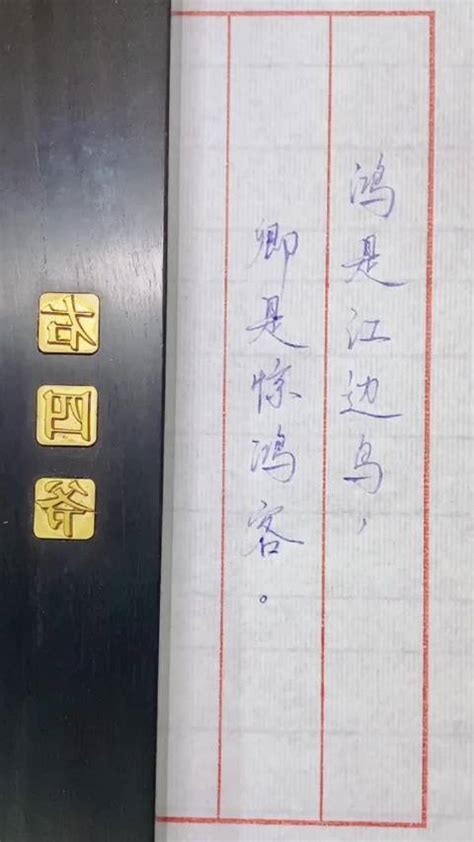 鸿是江边鸟，
卿是惊鸿客。